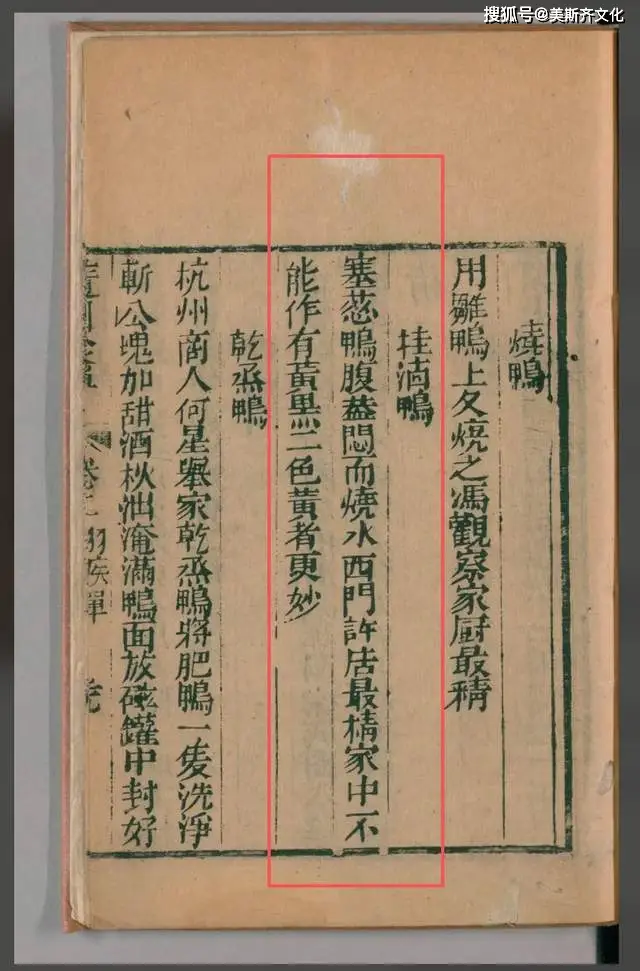 搜狐号@美斯齐文化
燒鴨
用雛鴨上叉燒之馮觀察家厨最精
挂滷鴨
塞葱鴨腹葢悶而燒水西門許店最精家中不
能作有黃黑二色黃者更妙
乾蒸鴨
杭州商人何星舉家乾蒸鴨將肥鴨一隻洗淨
斬公塊加甜酒秋油淹滿鴨面放磁罐中封好
羽族單